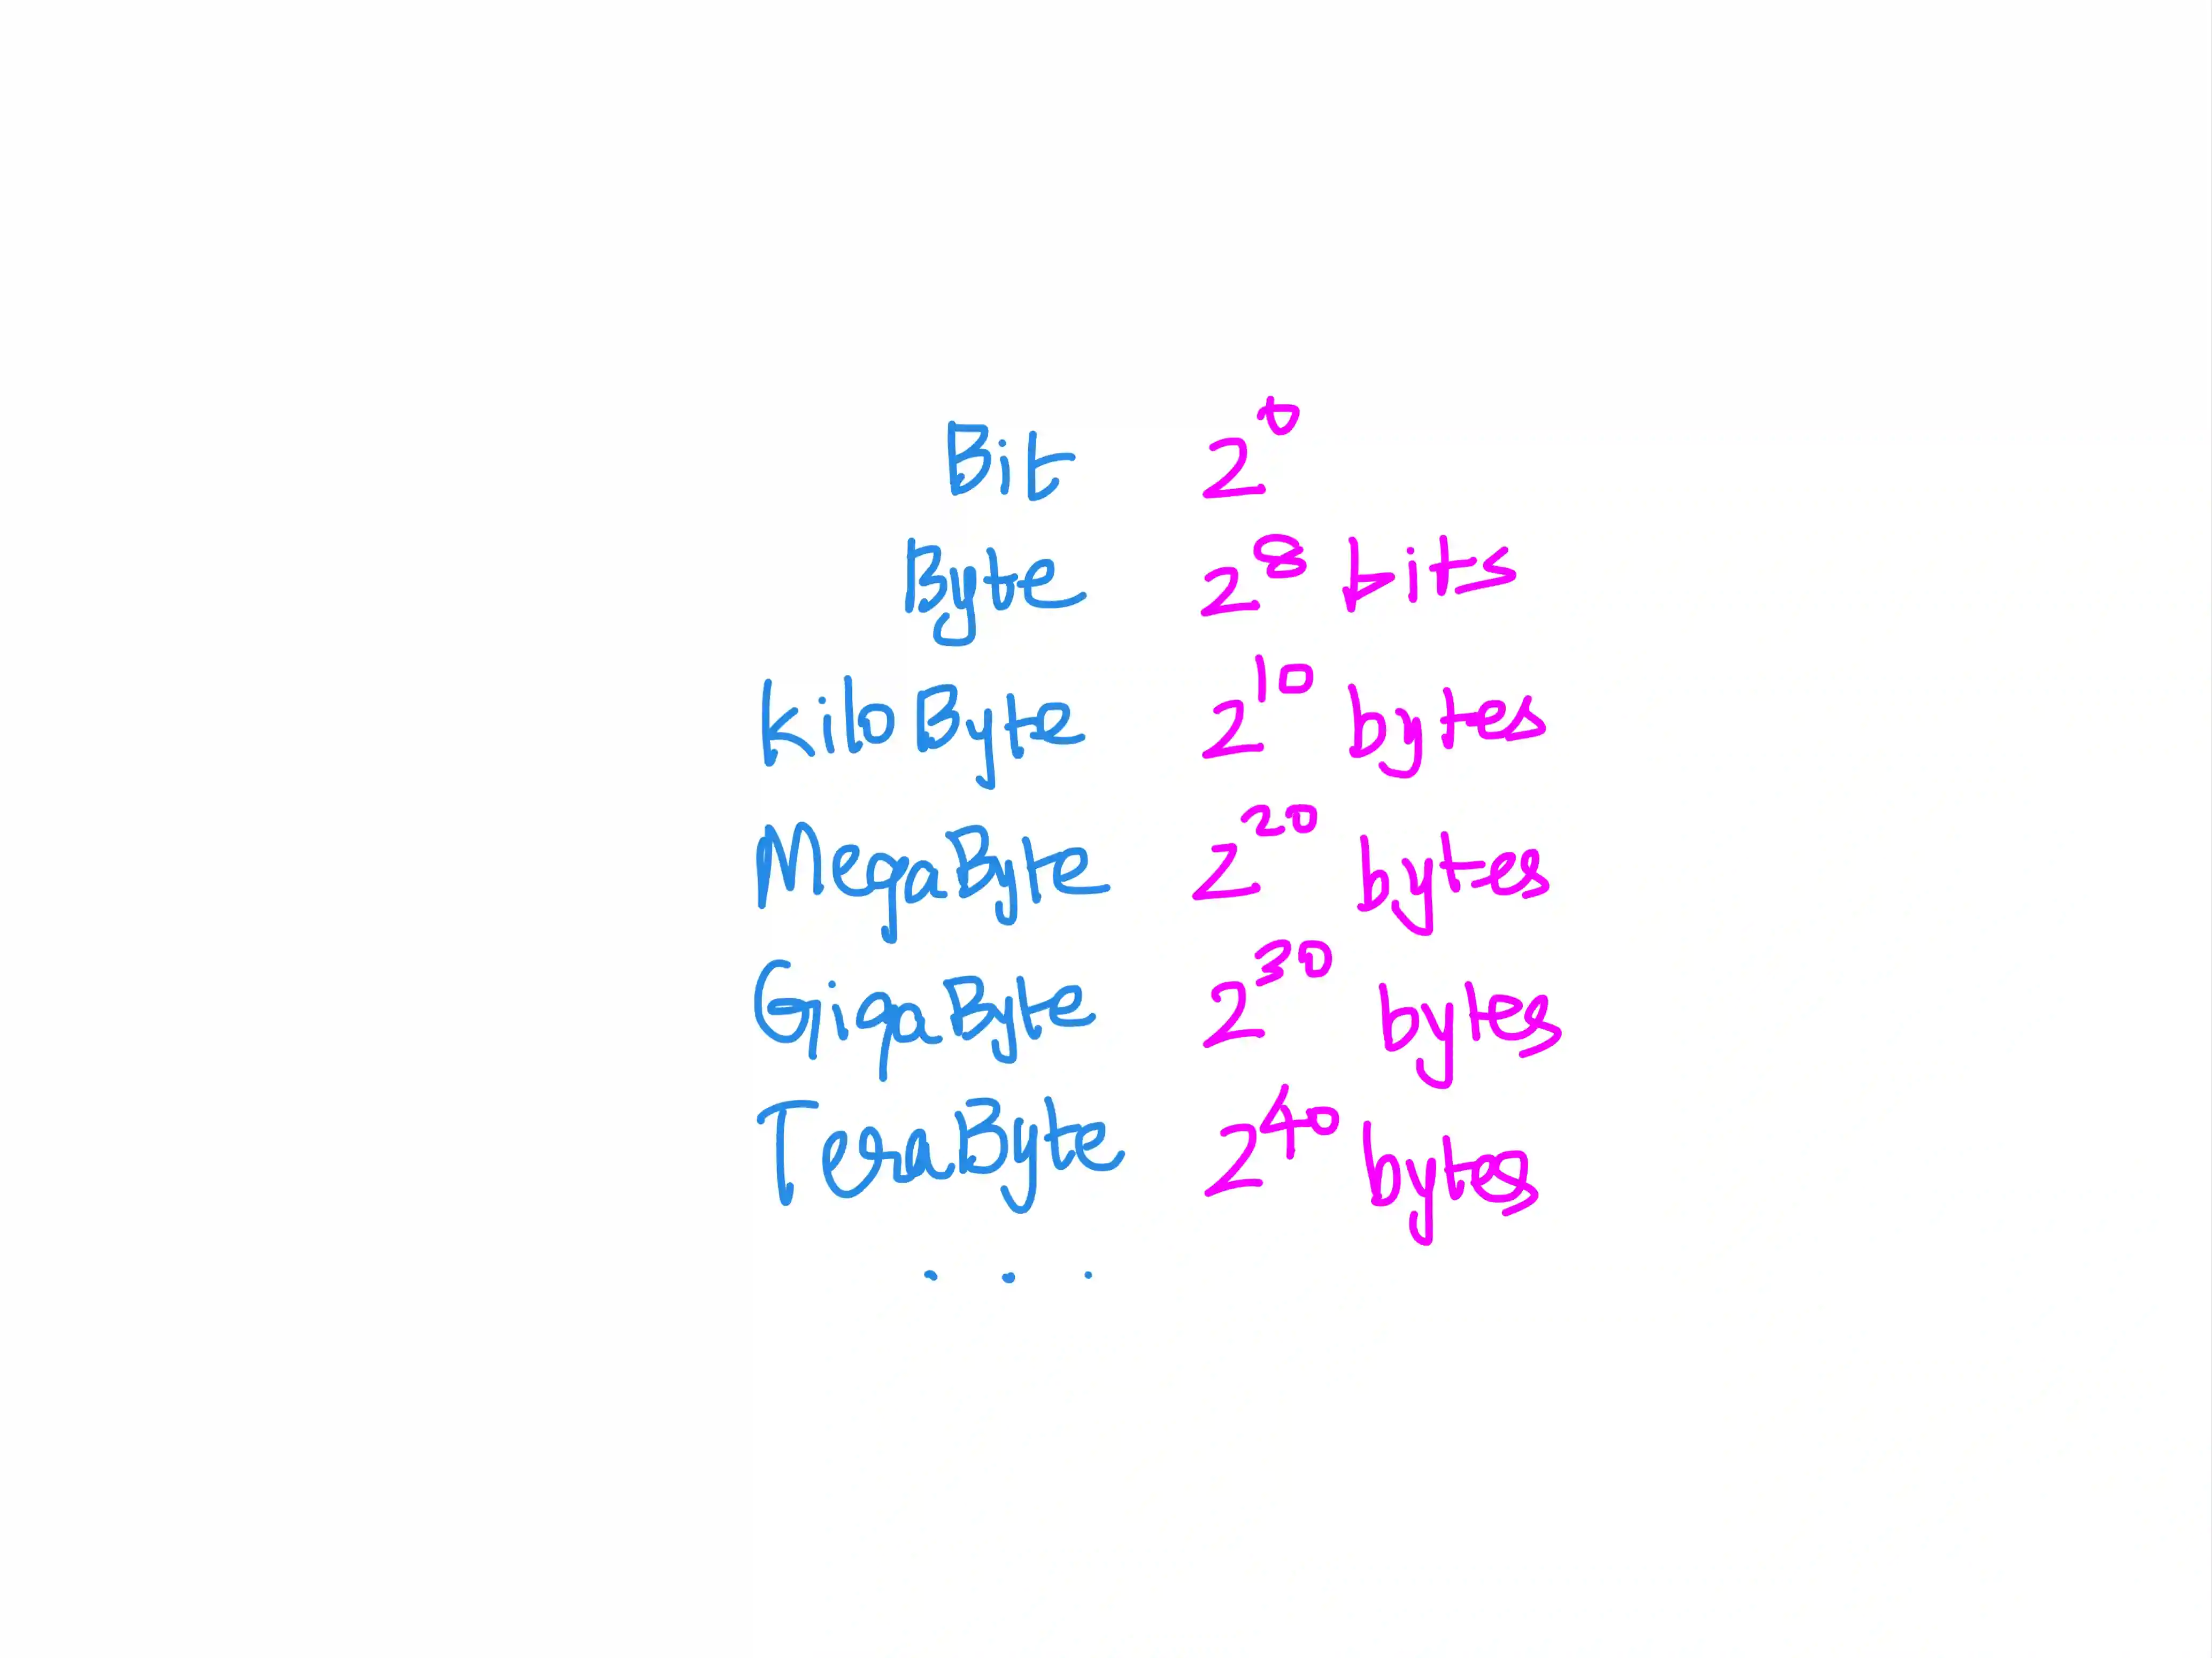 Bit 2⁰
Byte 2⁸ bits
kiloByte 2¹⁰ bytes
MegaByte 2²⁰ bytes
GigaByte 2³⁰ bytes
TeraByte 2⁴⁰ bytes
...